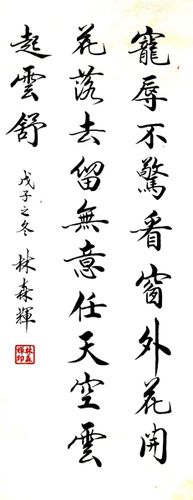 寵辱不驚看窗外花開
花落去留無意任天空雲
起雲舒
戊子之冬 林森輝
林森輝印